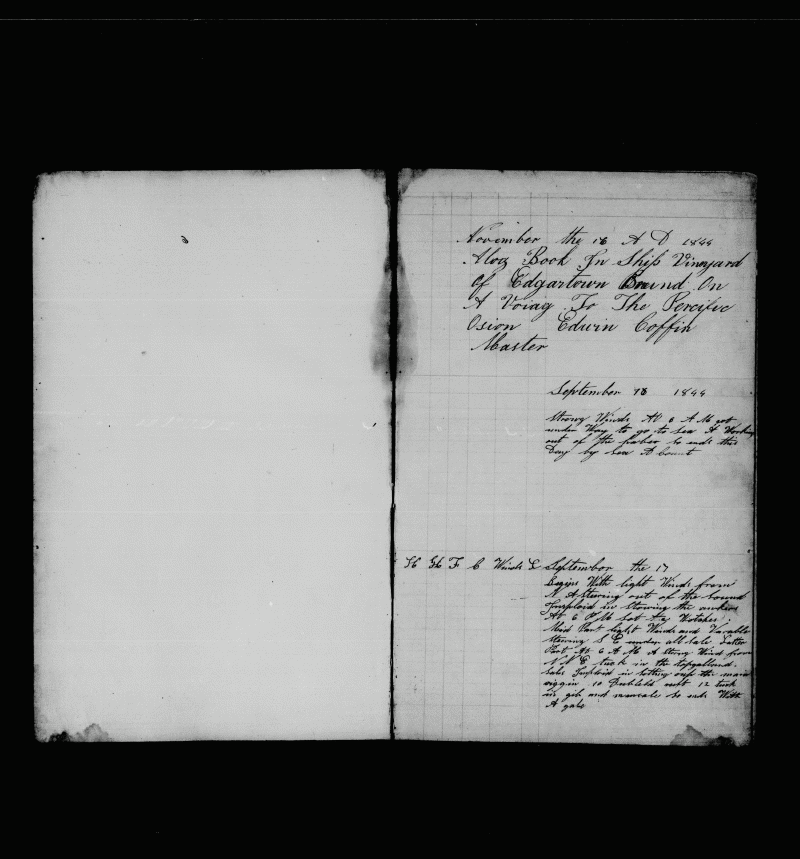 November the 16 A D 1844
Alog Book In Ship Vinnyard
Of Edgartown Bound On
A Voiag To The Percific
Osion Edwin Coffin
Master
September 16 1844
Strong Winds At 6 A M got
under Way to go to sea A Working
out of the harber so ends this
Day by sea A Count
H K F C Winds L September the 17
Begins With light Winds from
N A Stering out of the sound
Imploid in Stowing the ankers
At 6 P M Sot the Watches
Mid Part light Winds and Varable
Stering S E under all sale Latter
Part At 6 A M A Strong Wind from
N N E tuck in the topgallund
Sales Imploid in up the main
riggin 10 reef 12 tuck
in gib and so ends With
A gale